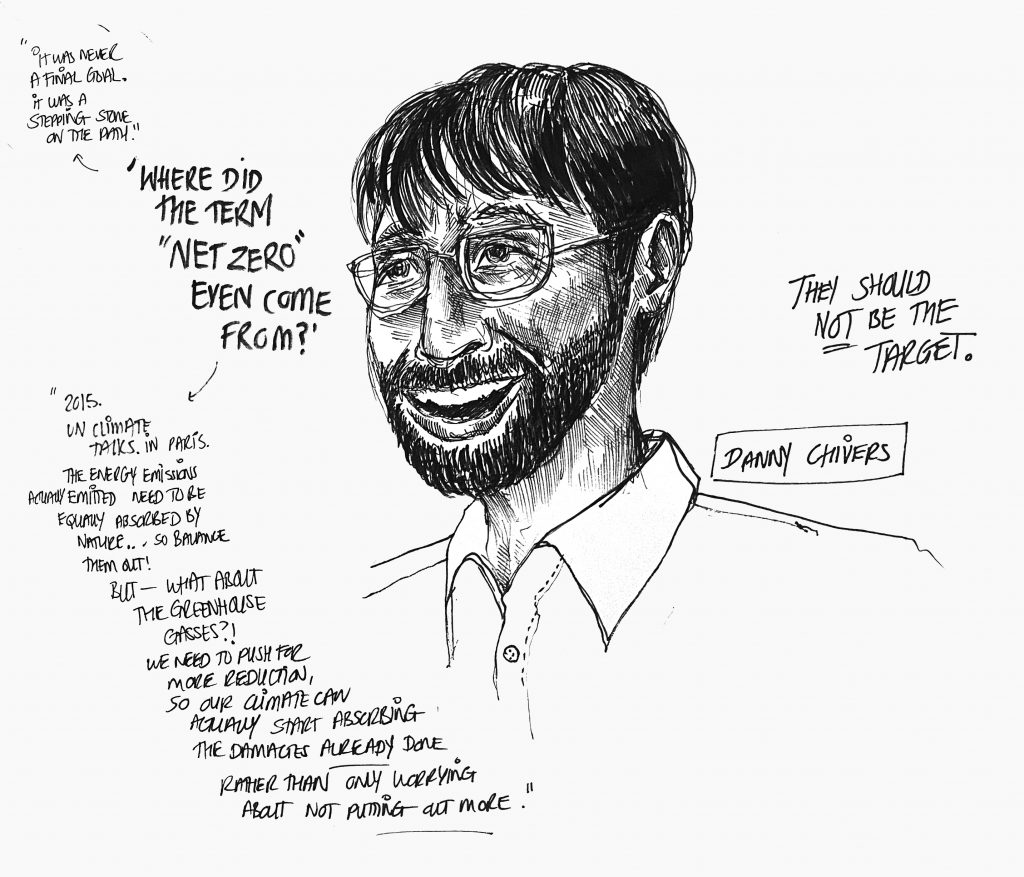 "IT WAS NEVER
A FINAL GOAL.
IT WAS A
STEPPING STONE
ON THE PATH."
'WHERE DID
THE TERM
"NET ZERO"
EVEN COME
FROM?'
"2015.
UN CLIMATE
TALKS. IN PARIS.
THE ENERGY EMISSIONS
ACTUALLY EMITTED NEED TO BE
EQUALLY ABSORBED BY
NATURE... SO BALANCE
THEM OUT!
BUT — WHAT ABOUT
THE GREENHOUSE
GASSES?!
WE NEED TO PUSH FOR
MORE REDUCTION,
SO OUR CLIMATE CAN
ACTUALLY START ABSORBING
THE DAMAGES ALREADY DONE
RATHER THAN ONLY WORRYING
ABOUT NOT PUTTING OUT MORE."
THEY SHOULD
NOT BE THE
TARGET.
DANNY CHIVERS